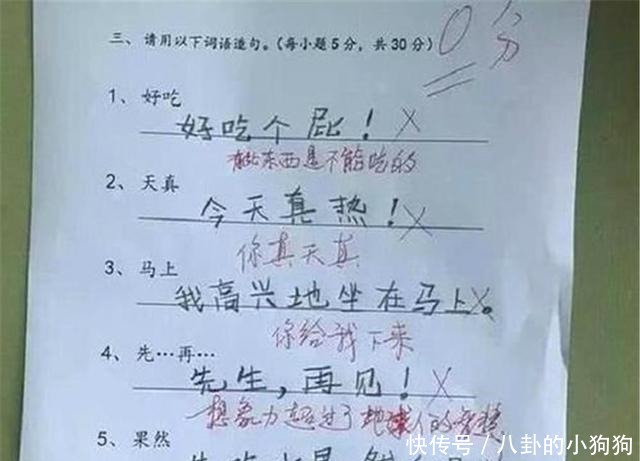 三、请用以下词语造句。(每小题5分，共30分) 0分
1、好吃
好吃个屁！
有些东西是不能吃的
2、天真
今天真热！
你真天真
3、马上
我高兴地坐在马上。
你给我下来
4、先…再…
先生，再见！
想象力超过了地球人的
5、果然
快传号／八卦的小狗狗